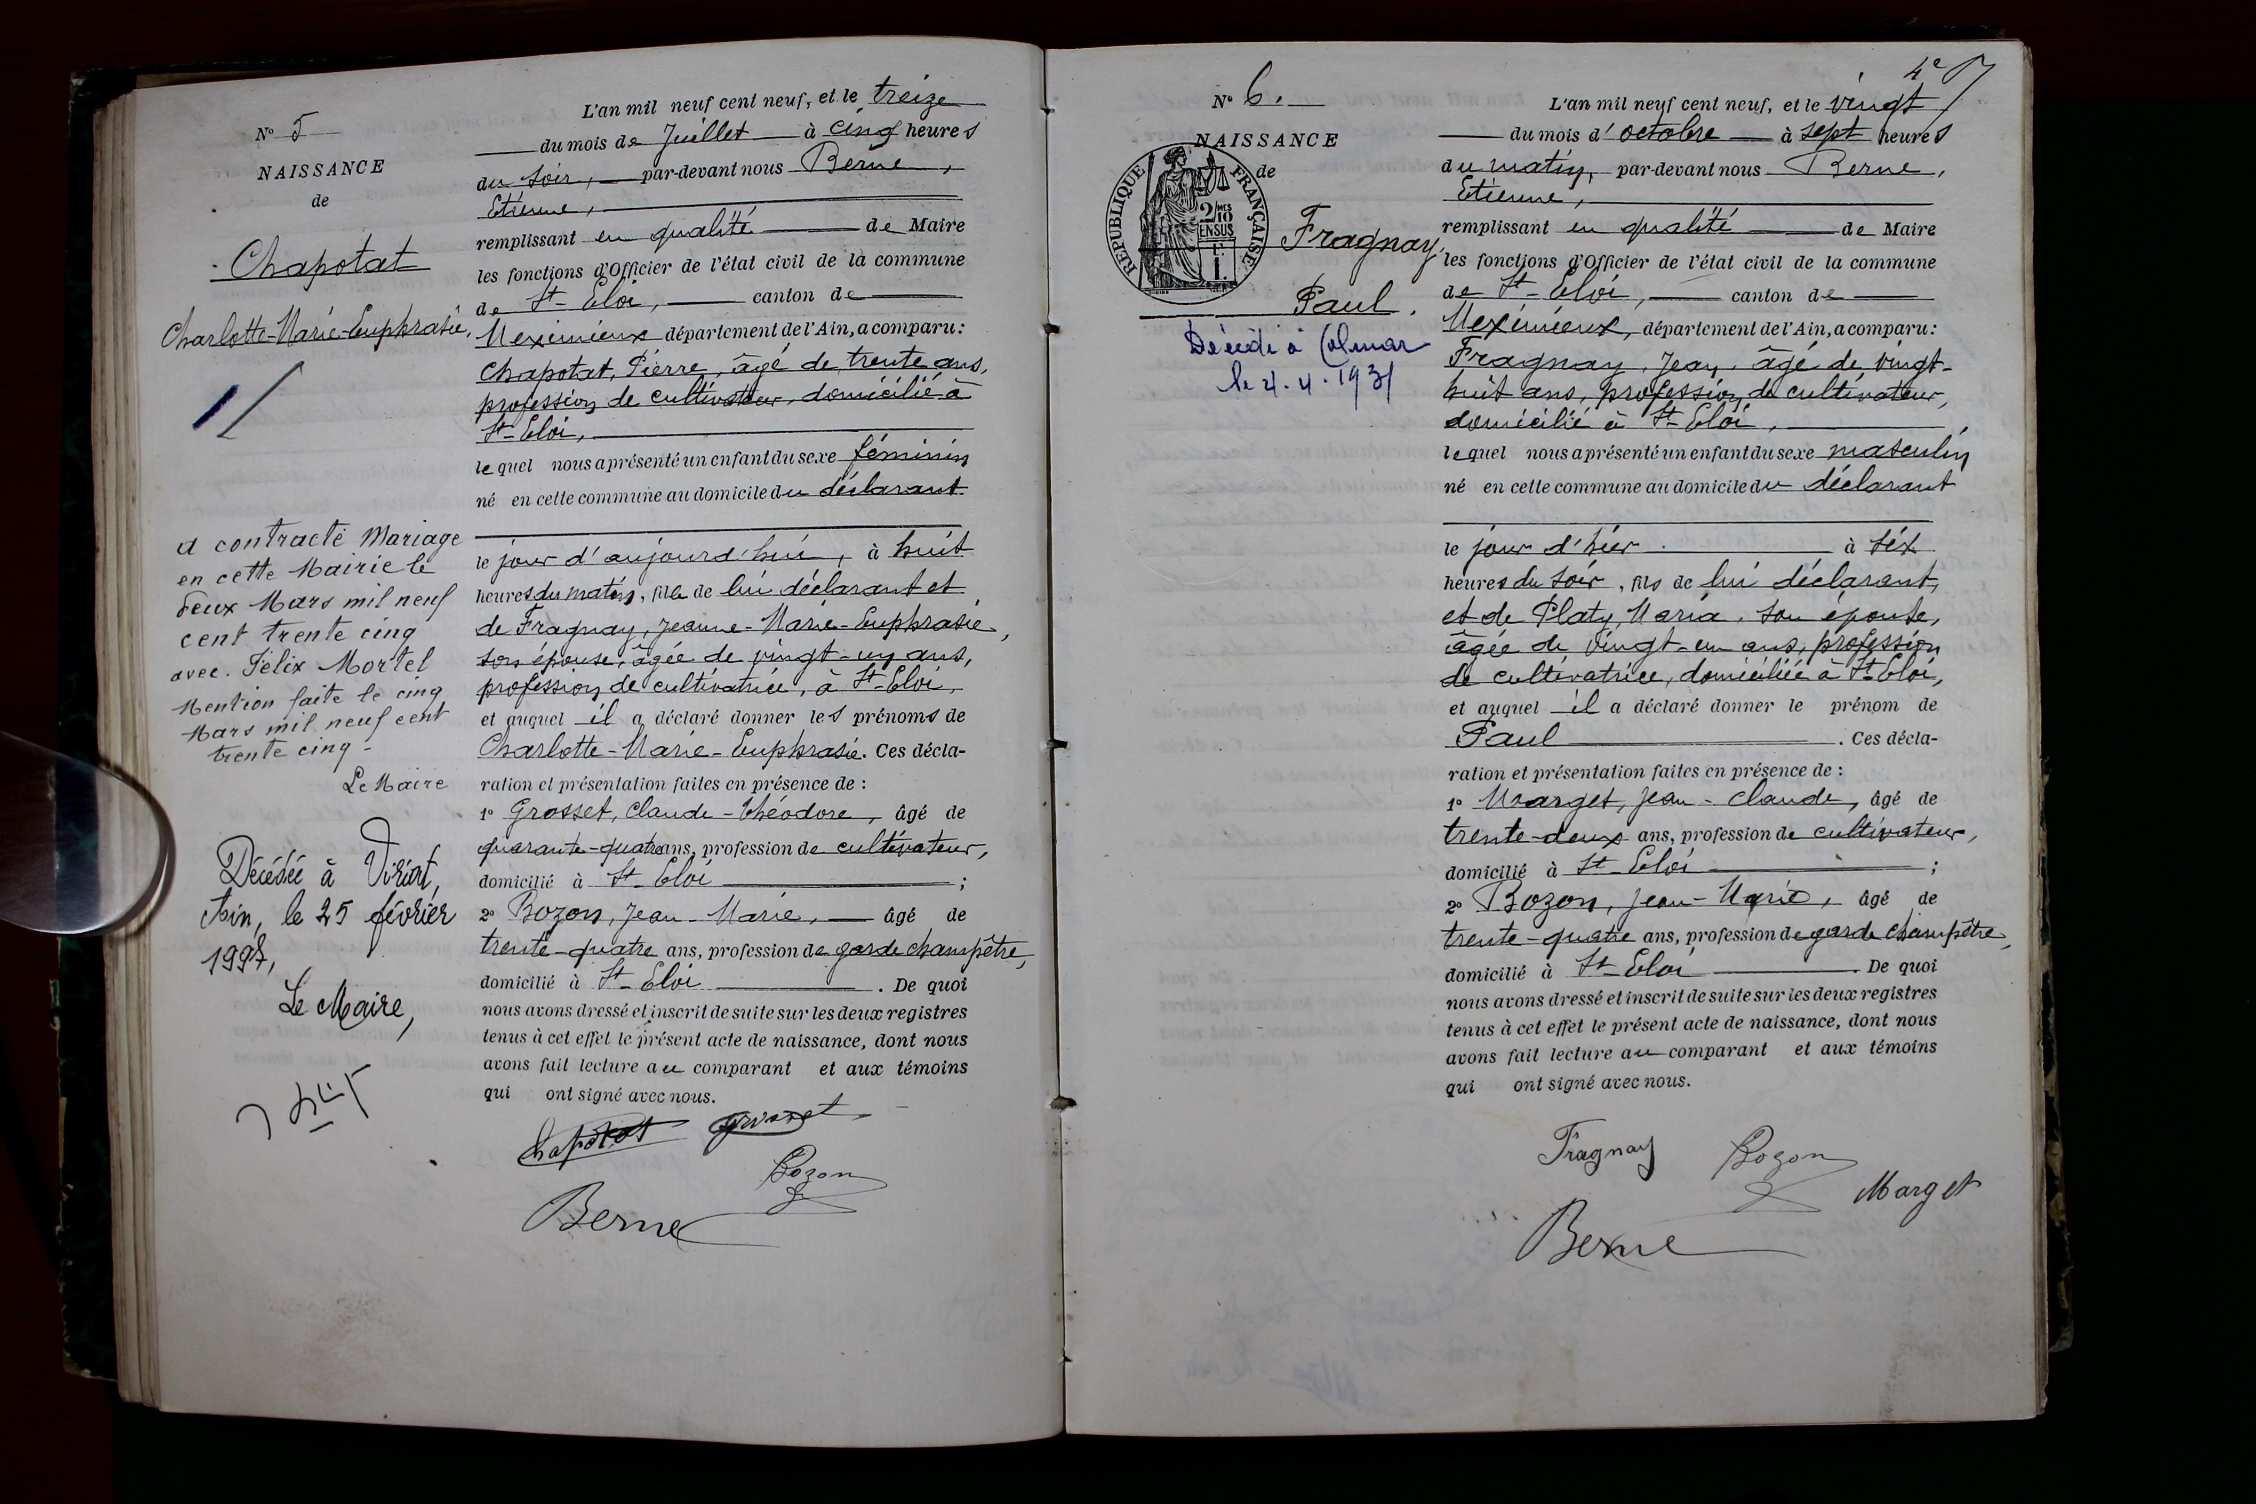 N° 5
NAISSANCE
de
Chapotat
Charlotte-Marie-Euphrasie,
a contracté Mariage
en cette Mairie le
deux Mars mil neuf
cent trente cinq
avec Félix Mortel
Mention faite le cinq
Mars mil neuf cent
trente cinq -
Le Maire
Décédée à Viriat,
Ain, le 25 février
Le Maire,
L'an mil neuf cent neuf, et le treize
du mois de Juillet à cinq heures
du soir, par-devant nous Berne,
Etienne,
remplissant en qualité de Maire
les fonctions d'Officier de l'état civil de la commune
de St-Eloi, canton de
Meximieux département de l'Ain, a comparu :
Chapotat, Pierre, âgé de trente ans,
profession de cultivateur, domicilié à
St-Eloi,
lequel nous a présenté un enfant du sexe féminin
né en cette commune au domicile du déclarant
le jour d'aujourd'hui, à huit
heures du matin, fille de lui déclarant et
de Fragnay, Jeanne-Marie-Euphrasie,
son épouse, âgée de vingt-un ans,
profession de cultivatrice, à St-Eloi,
et auquel il a déclaré donner les prénoms de
Charlotte-Marie-Euphrasie. Ces décla-
ration et présentation faites en présence de :
1° Grosset, Claude-Théodore, âgé de
quarante-quatre ans, profession de cultivateur,
domicilié à St-Eloi ;
2° Bozon, Jean-Marie, âgé de
trente-quatre ans, profession de garde champêtre,
domicilié à St-Eloi. De quoi
nous avons dressé et inscrit de suite sur les deux registres
tenus à cet effet le présent acte de naissance, dont nous
avons fait lecture au comparant et aux témoins
qui ont signé avec nous.
Chapotat Grosset
Bozon
Berne
4e
N° 6.
NAISSANCE
de
REPUBLIQUE FRANÇAISE
2/10 MES EN SUS
1 F.
Fragnay,
Paul.
Décédé à Colmar
le 4.4.1931
L'an mil neuf cent neuf, et le vingt
du mois d'octobre à sept heures
du matin, par-devant nous Berne,
Etienne,
remplissant en qualité de Maire
les fonctions d'Officier de l'état civil de la commune
de St-Eloi, canton de
Meximieux, département de l'Ain, a comparu :
Fragnay, Jean, âgé de vingt-
huit ans, profession de cultivateur,
domicilié à St-Eloi,
lequel nous a présenté un enfant du sexe masculin
né en cette commune au domicile du déclarant
le jour d'hier à six
heures du soir, fils de lui déclarant,
et de Platy, Maria, son épouse,
âgée de vingt-un ans, profession
de cultivatrice, domiciliée à St-Eloi,
et auquel il a déclaré donner le prénom de
Paul. Ces décla-
ration et présentation faites en présence de :
1° Marget, Jean-Claude, âgé de
trente-deux ans, profession de cultivateur,
domicilié à St-Eloi ;
2° Bozon, Jean-Marie, âgé de
trente-quatre ans, profession de garde champêtre,
domicilié à St-Eloi. De quoi
nous avons dressé et inscrit de suite sur les deux registres
tenus à cet effet le présent acte de naissance, dont nous
avons fait lecture au comparant et aux témoins
qui ont signé avec nous.
Fragnay Bozon
Marget
Berne